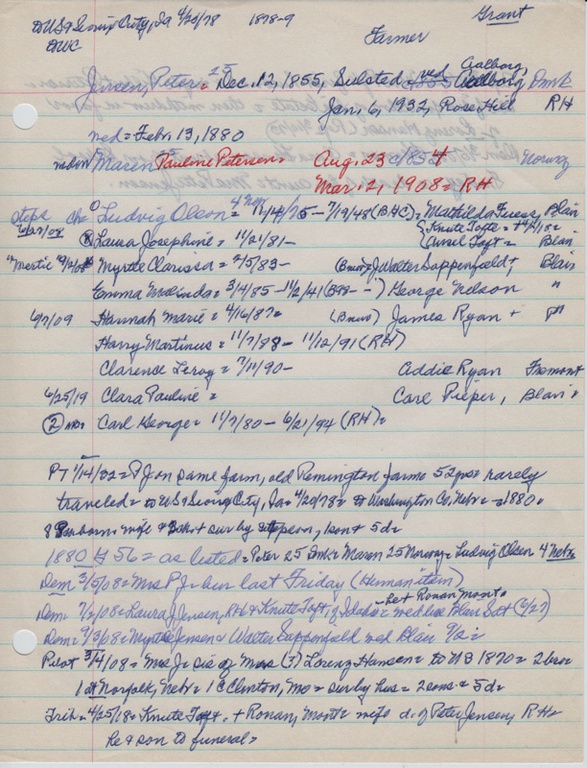 Grant
to US & Sioux City, Ia 4/20/78 1878-9
Farmer
Jensen, Peter = Dec. 12, 1855, Sulsted ved Aalborg, Dmk
Jan. 6, 1932, Rose Hill RH
wed = Feb. 13, 1880
Maren Pauline Petersen = Aug. 23 c/1854 Norway
Mar. 2, 1908 = RH
steps ch = Ludvig Olson = 4 Nov 11/14/75 - 7/19/48 (BHC) = Mathilda Blair
6/27/08 Laura Josephine = 11/21/81 - Knute Tofte =
Blair
Myrtle Clarissa = 2/5/83 - J Walter Sappenfeld +, Blair
Emma Malinda = 3/4/85 - 11/2/41 George Nelson "
6/7/09 Hannah Marie = 4/16/87 = James Ryan + "
Harry Martinus = 11/7/88 - 11/12/91 (RH)
Clarence Leroy = 7/11/90 - Addie Ryan Fremont
6/25/19 Clara Pauline = Carl Pieper, Blair =
2 Carl George = 11/7/80 - 6/21/94 (RH) =
PT 1/14/32 = PJ on same farm, old Remington farm = 52 yrs = rarely
traveled = to US & Sioux City, Ia = 4/20/78 = to Washington Co, Nebr = 1880 =
8 born = wife & sur by stepson, 1 son & 5 d =
1880 # 56 = as listed = Peter 25 Dmk = Maren 25 Norway = Ludvig Olson 4 Nebr =
Dem 3/5/08 = Mrs PJ = bur last Friday (Humanitein)
he + Ronan Mont =
Dem = 7/2/08 = Laura J Jensen, RH & Knute Toft, of Idaho = wed here Blair Sat (6/27)
Dem = 9/3/08 = Myrtle Jensen & Walter Sappenfeld wed Blair 9/2 =
Pilot 3/4/08 = Mrs J = sis of Mrs (?) Lorenz Hansen = to US 1870 = 2 bros =
1 at Norfolk, Nebr = 1 Clinton, Mo = sur by hus = 2 sons & 5 d =
Trib = 4/25/18 = Knute Toft + Ronan, Mont = wife d. of Peter Jensen, RH =
he & son to funeral =